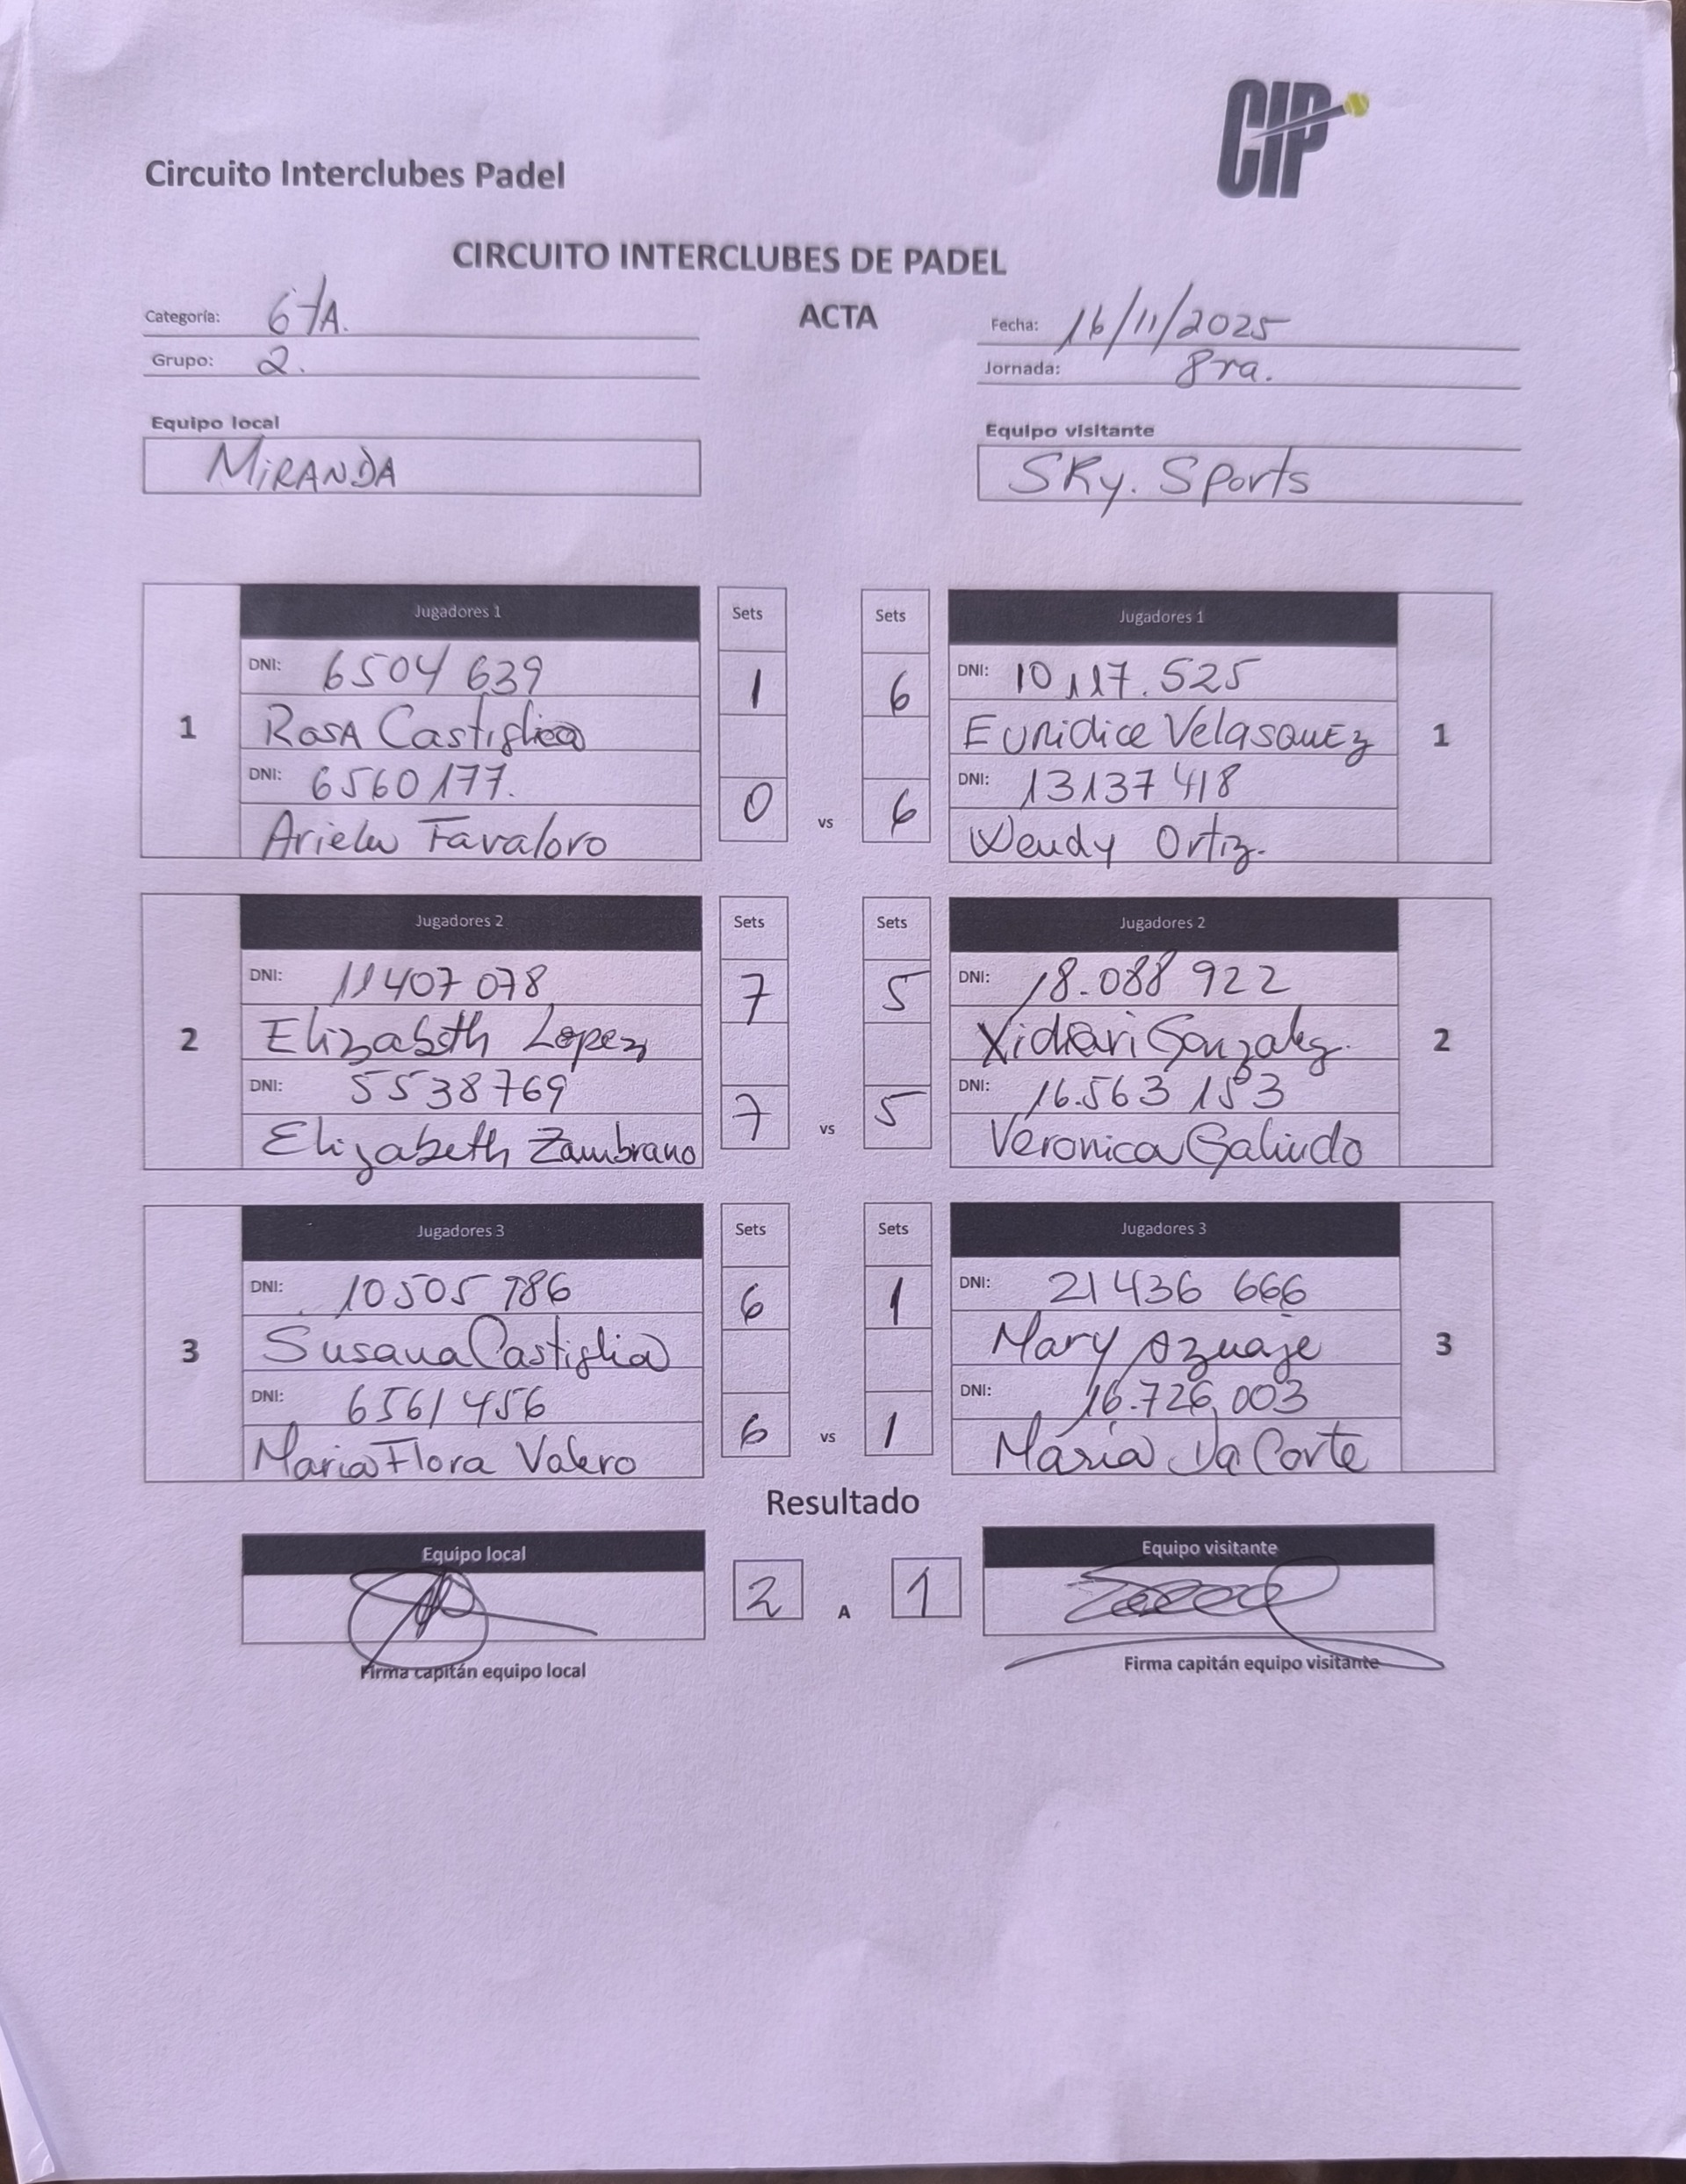 CIP
Circuito Interclubes Padel
CIRCUITO INTERCLUBES DE PADEL
Categoría: 6TA. ACTA Fecha: 16/11/2025
Grupo: 2. Jornada: 8ra.
Equipo local Equipo visitante
MIRANDA SKy. Sports
Jugadores 1 Sets Sets Jugadores 1
DNI: 6504 639 1 6 DNI: 10.117.525
1 ROSA Castiglia EURIDICE VELASQUEZ 1
DNI: 6560177. 0 vs 6 DNI: 13137418
Ariela Favaloro Wendy Ortiz.
Jugadores 2 Sets Sets Jugadores 2
DNI: 11407 078 7 5 DNI: 18.088 922
2 Elizabeth Lopez Gonzalez. 2
DNI: 5538769 7 vs 5 DNI: 16.563 153
Elizabeth Zambrano Veronica Galindo
Jugadores 3 Sets Sets Jugadores 3
DNI: 10505 786 6 1 DNI: 21436 666
3 Susana Castiglia Mary Azuaje 3
DNI: 6561456 6 vs 1 DNI: 16.726,003
Maria Flora Valero Maria Da Corte
Resultado
Equipo local 2 A 1 Equipo visitante
Firma capitán equipo local Firma capitán equipo visitante